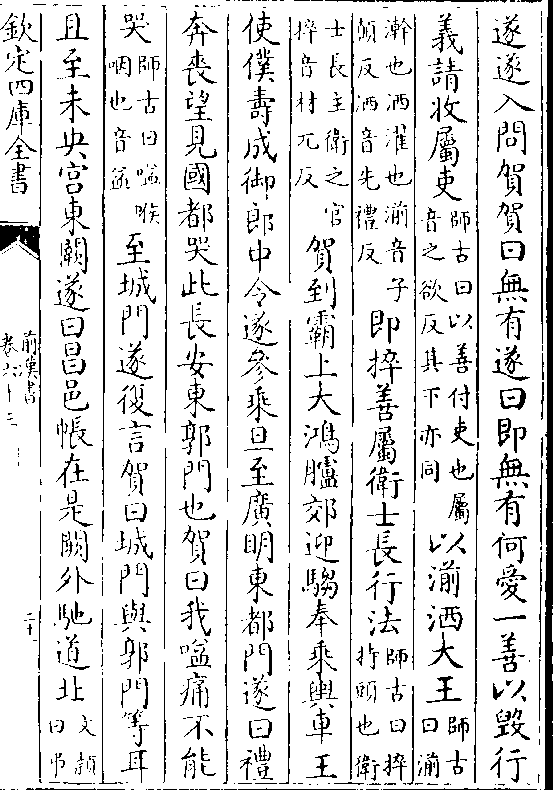 遂遂入問賀賀曰無有遂曰即無有何愛一善以毀行
義請收屬吏師古曰以善付吏也屬音之欲反其下亦同以湔洒大王師古曰湔
澣也洒濯也湔音子顛反洒音先禮反即捽善屬衛士長行法師古曰捽持頭也衛
士長主衛之官捽音材兀反賀到霸上大鴻臚郊迎騶奉乘輿車王
使僕壽成御郎中令遂參乘旦至廣明東都門遂曰禮
奔喪望見國都哭此長安東郭門也賀曰我嗌痛不能
哭師古曰嗌喉咽也音益至城門遂復言賀曰城門與郭門等耳
且至未央宮東闕遂曰昌邑帳在是闕外馳道北文穎曰弔
欽定四庫全書
前漢書
卷六十三
二十